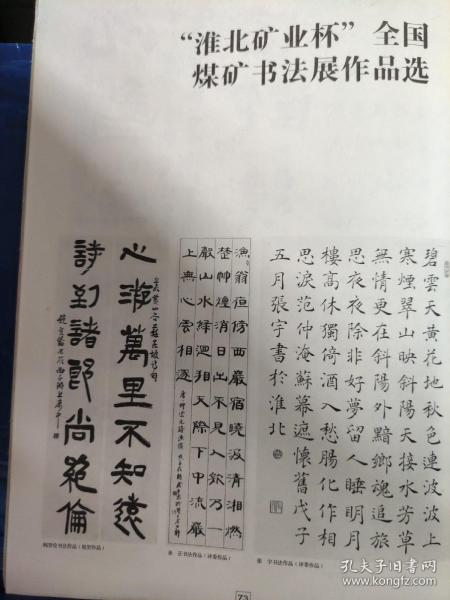 “淮北矿业杯”全国
煤矿书法展作品选
碧雲天黄花地秋色連波波上
寒煙翠山映斜陽天接水芳草
無情更在斜陽外黯鄉魂追旅
思夜夜除非好夢留人睡明月
樓高休獨倚酒入愁腸化作相
思淚范仲淹蘇幕遮懷舊戊子
五月張宇書於淮北
漁翁夜傍西巖宿曉汲清湘燃
楚竹煙消日出不見人欸乃一
聲山水綠迴看天際下中流巖
上無心雲相逐
心游萬里不知遠
詩到諸郎尚絶倫
书法作品（特邀作品）
正书法作品（评委作品）
张 宇书法作品（评委作品）
73
孔夫子旧书网